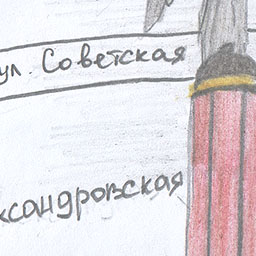 ул. Советская
ксандровская